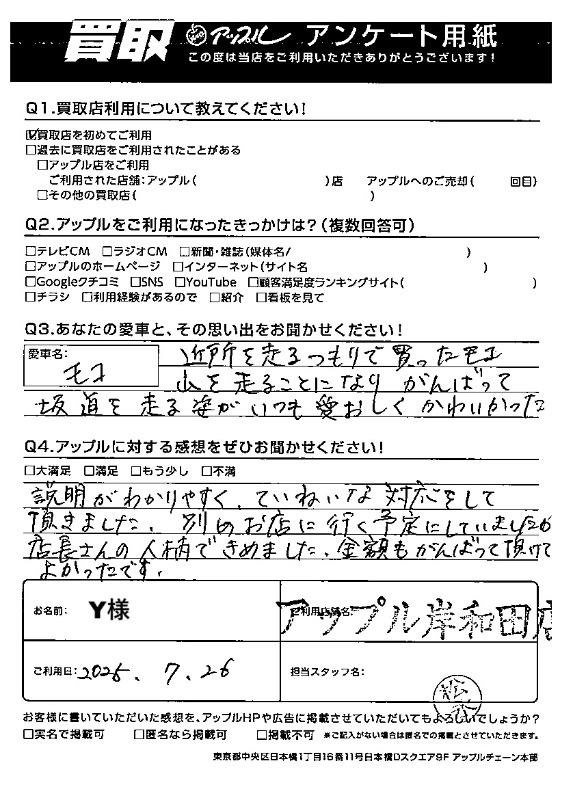 買取 アップル アンケート用紙
この度は当店をご利用いただきありがとうございます!
Q1.買取店利用について教えてください!
☑買取店を初めてご利用
□過去に買取店をご利用されたことがある
□アップル店をご利用
ご利用された店舗:アップル( )店 アップルへのご売却( 回目)
□その他の買取店( )
Q2.アップルをご利用になったきっかけは?(複数回答可)
□テレビCM □ラジオCM □新聞・雑誌(媒体名/ )
□アップルのホームページ □インターネット(サイト名 )
□Googleクチコミ □SNS □YouTube □顧客満足度ランキングサイト( )
□チラシ □利用経験があるので □紹介 □看板を見て
Q3.あなたの愛車と、その思い出をお聞かせください!
愛車名:
モコ
近所を走るつもりで買ったモコ
山を走ることになり がんばって
坂道を走る姿がいつも愛おしくかわいかった
Q4.アップルに対する感想をぜひお聞かせください!
□大満足 □満足 □もう少し □不満
説明がわかりやすく、ていねいな対応をして
頂きました。別のお店に行く予定にしていましたが
店長さんの人柄できめました。金額もがんばって頂けて
よかったです。
お名前: Y様
ご利用店舗名: アップル岸和田店
ご利用日:2025.7.26
担当スタッフ名:
お客様に書いていただいた感想を、アップルHPや広告に掲載させていただいてもよろしいでしょうか?
□実名で掲載可 □匿名なら掲載可 □掲載不可 ※ご記入がない場合は匿名での掲載とさせていただきます。
東京都中央区日本橋1丁目16番11号日本橋Dスクエア9F アップルチェーン本部